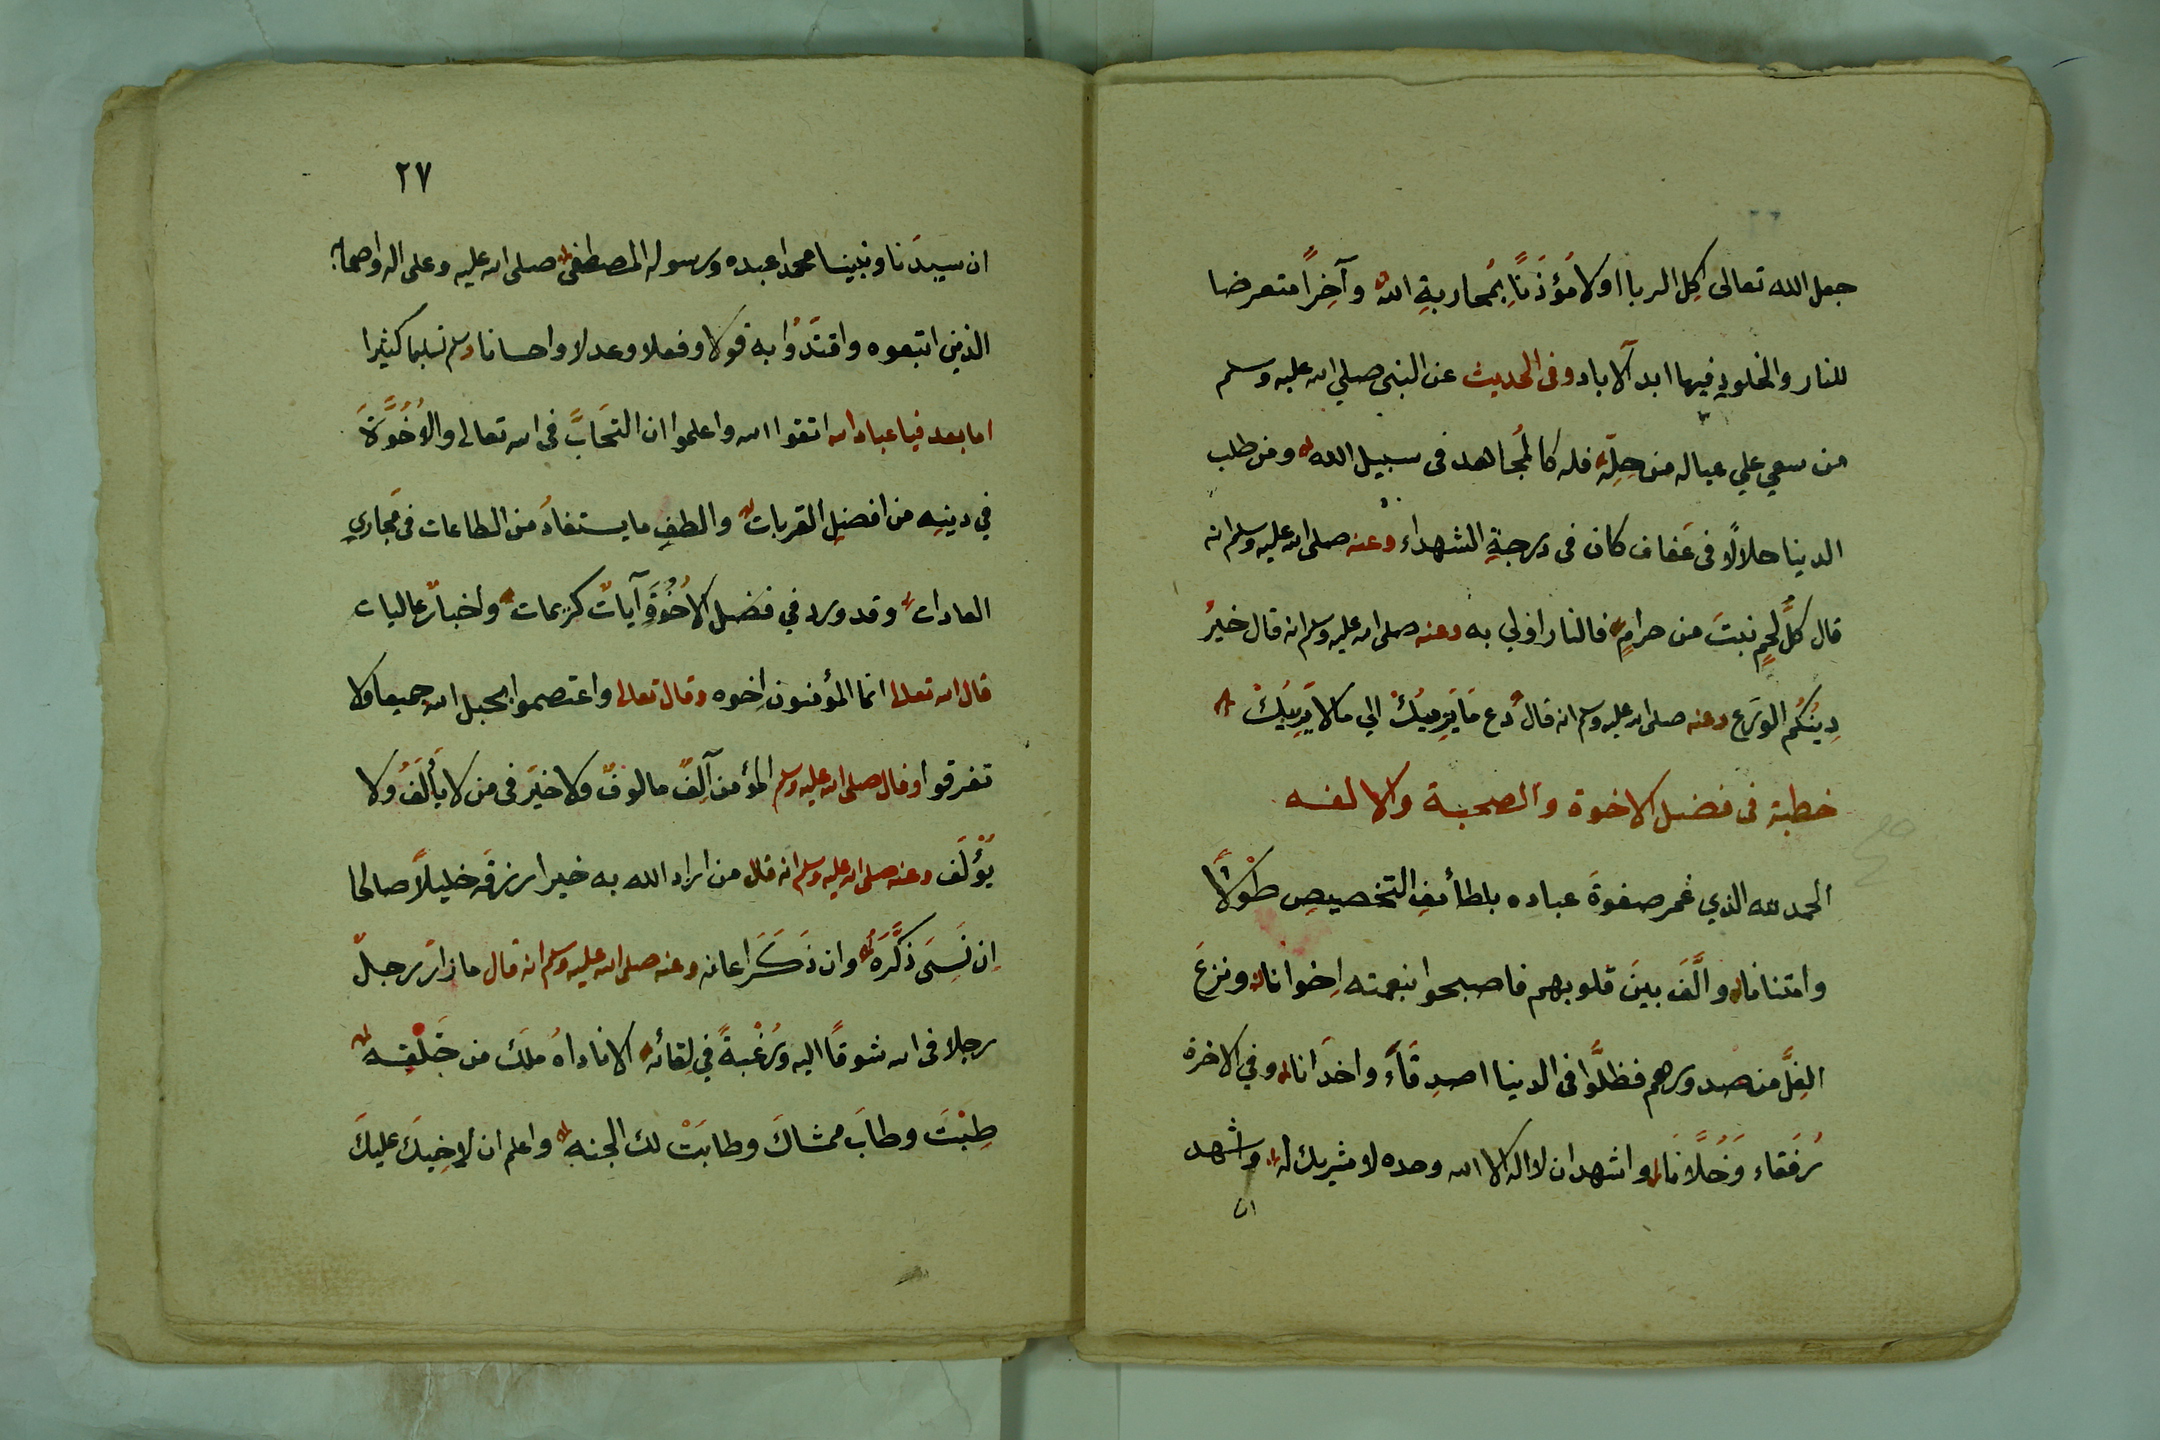 جعل الله تعالى اكِل الربا اولا مُؤذَنًا بمُحاربةِ الله وآخِرًا متعرضا
للنار والخلودِ فيها ابد آلاباد وفى الحديث عن النبى صلي الله عليه وسلم
من سعي علي عياله من حِلِّه فله كالمُجاهد فى سبيل الله ومن طلب
الدينا حلالًا فى عَفاف كان فى درجةِ الشهداء وعنه صلى الله عليه وسلم انه
قال كلُّ لحمٍ نبتَ من حرامٍ فالنار اولي به وعنه صلى الله عليه وسلم انه قال خيرُ
دِينُكُم الورَع وعنه صلى الله عليه وسلم انه قال دع مَا يَرِيبُكْ الي مالا يَرِيبُكْ
خطبة فى فضل الاخوة والصحبة والالفه
الحمد لله الذي غمر صفوةَ عباده بلطائفِ التخصيصِ طَوْلًا
وامتنانا والَّفَ بينَ قلوبهم فاصبحوا بنعمته اِخوانا ونزعَ
الغِلَّ من صدورهم فظلُّوا فى الدينا اصدِقَاءً واخدَانا وفي الاخرة
رُفَقاء وَخُلَّانَا واشهد ان لا اله الا الله وحده لا شريك له واشهد
ان
٢٧
ان سيدَنا ونبينا محمدا عبده ورسوله المصطفى صلى الله عليه وعلى اله واصحابه
الذين اتبعوه واقتَدُوا به قولا وفعلا وعدلا واحسانا وسلم تسليما كثيرا
اما بعد فيا عباد الله اتقوا الله واعلموا ان التحَابَّ فى الله تعالى والاُخُوَّةَ
في دينِه من افضلِ القربات والطفِ ما يستفادُ من الطاعات فى مَجاري
العادات وقد ورد في فضل الاُخُوَّةِ آياتٌ كريمات واخبارٌ عاليات
قال الله تعالى انما المؤمنون اِخوه وقال تعالى واعتصموا بحبل الله جميعا ولا
تفرقوا وقال صلى الله عليه وسلم المؤمن آلِفٌ مالوفٌ ولا خيَر فى من لا يأَلَفُ ولا
يُؤْلَف وعنه صلى الله عليه وسلم انه قال من اراد الله به خيرا رزقَه خليلاً صالحا
اِن نَسِىَ ذكَّرَهُ وان ذَكَرَ اعانه وعنه صلى الله عليه وسلم انه قال ما زارَ رجلٌ
رجلا فى الله شوقًا اليه ورُغْبةً في لِقائه الا ناداهُ ملَك من خَلْفِه
طِبْتَ وطابَ ممشاكَ وطابَتْ لك الجنه واعلم ان لاخِيكَ عليكَ